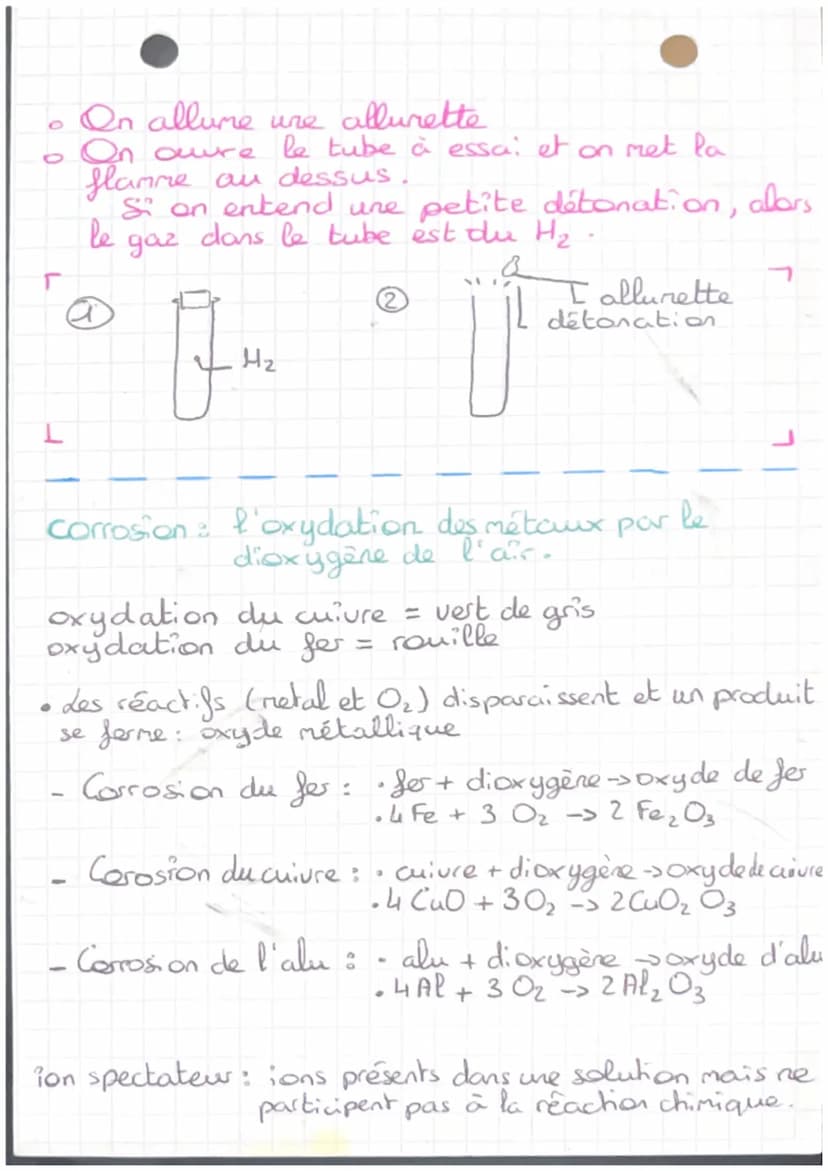 ◦ On allume une allumette
◦ On ouvre le tube à essai et on met la
flamme au dessus.
Si on entend une petite détonation, alors
le gaz dans le tube est du H₂.
①
②
allumette
détonation
H₂
corrosion : l'oxydation des métaux par le
dioxygène de l'air.
oxydation du cuivre = vert de gris
oxydation du fer = rouille
• des réactifs (metal et O₂) disparaissent et un produit
se forme : oxyde métallique
- Corrosion du fer : • fer + dioxygène -> oxyde de fer
• 4 Fe + 3 O₂ -> 2 Fe₂O₃
- Corosion du cuivre : • cuivre + dioxygène -> oxyde de cuivre
• 4 CuO + 3O₂ -> 2CuO₂ O₃
- Corrosion de l'alu : • alu + dioxygène -> oxyde d'alu
• 4 Al + 3 O₂ -> 2 Al₂ O₃
ion spectateur : ions présents dans une solution mais ne
participent pas à la réaction chimique.